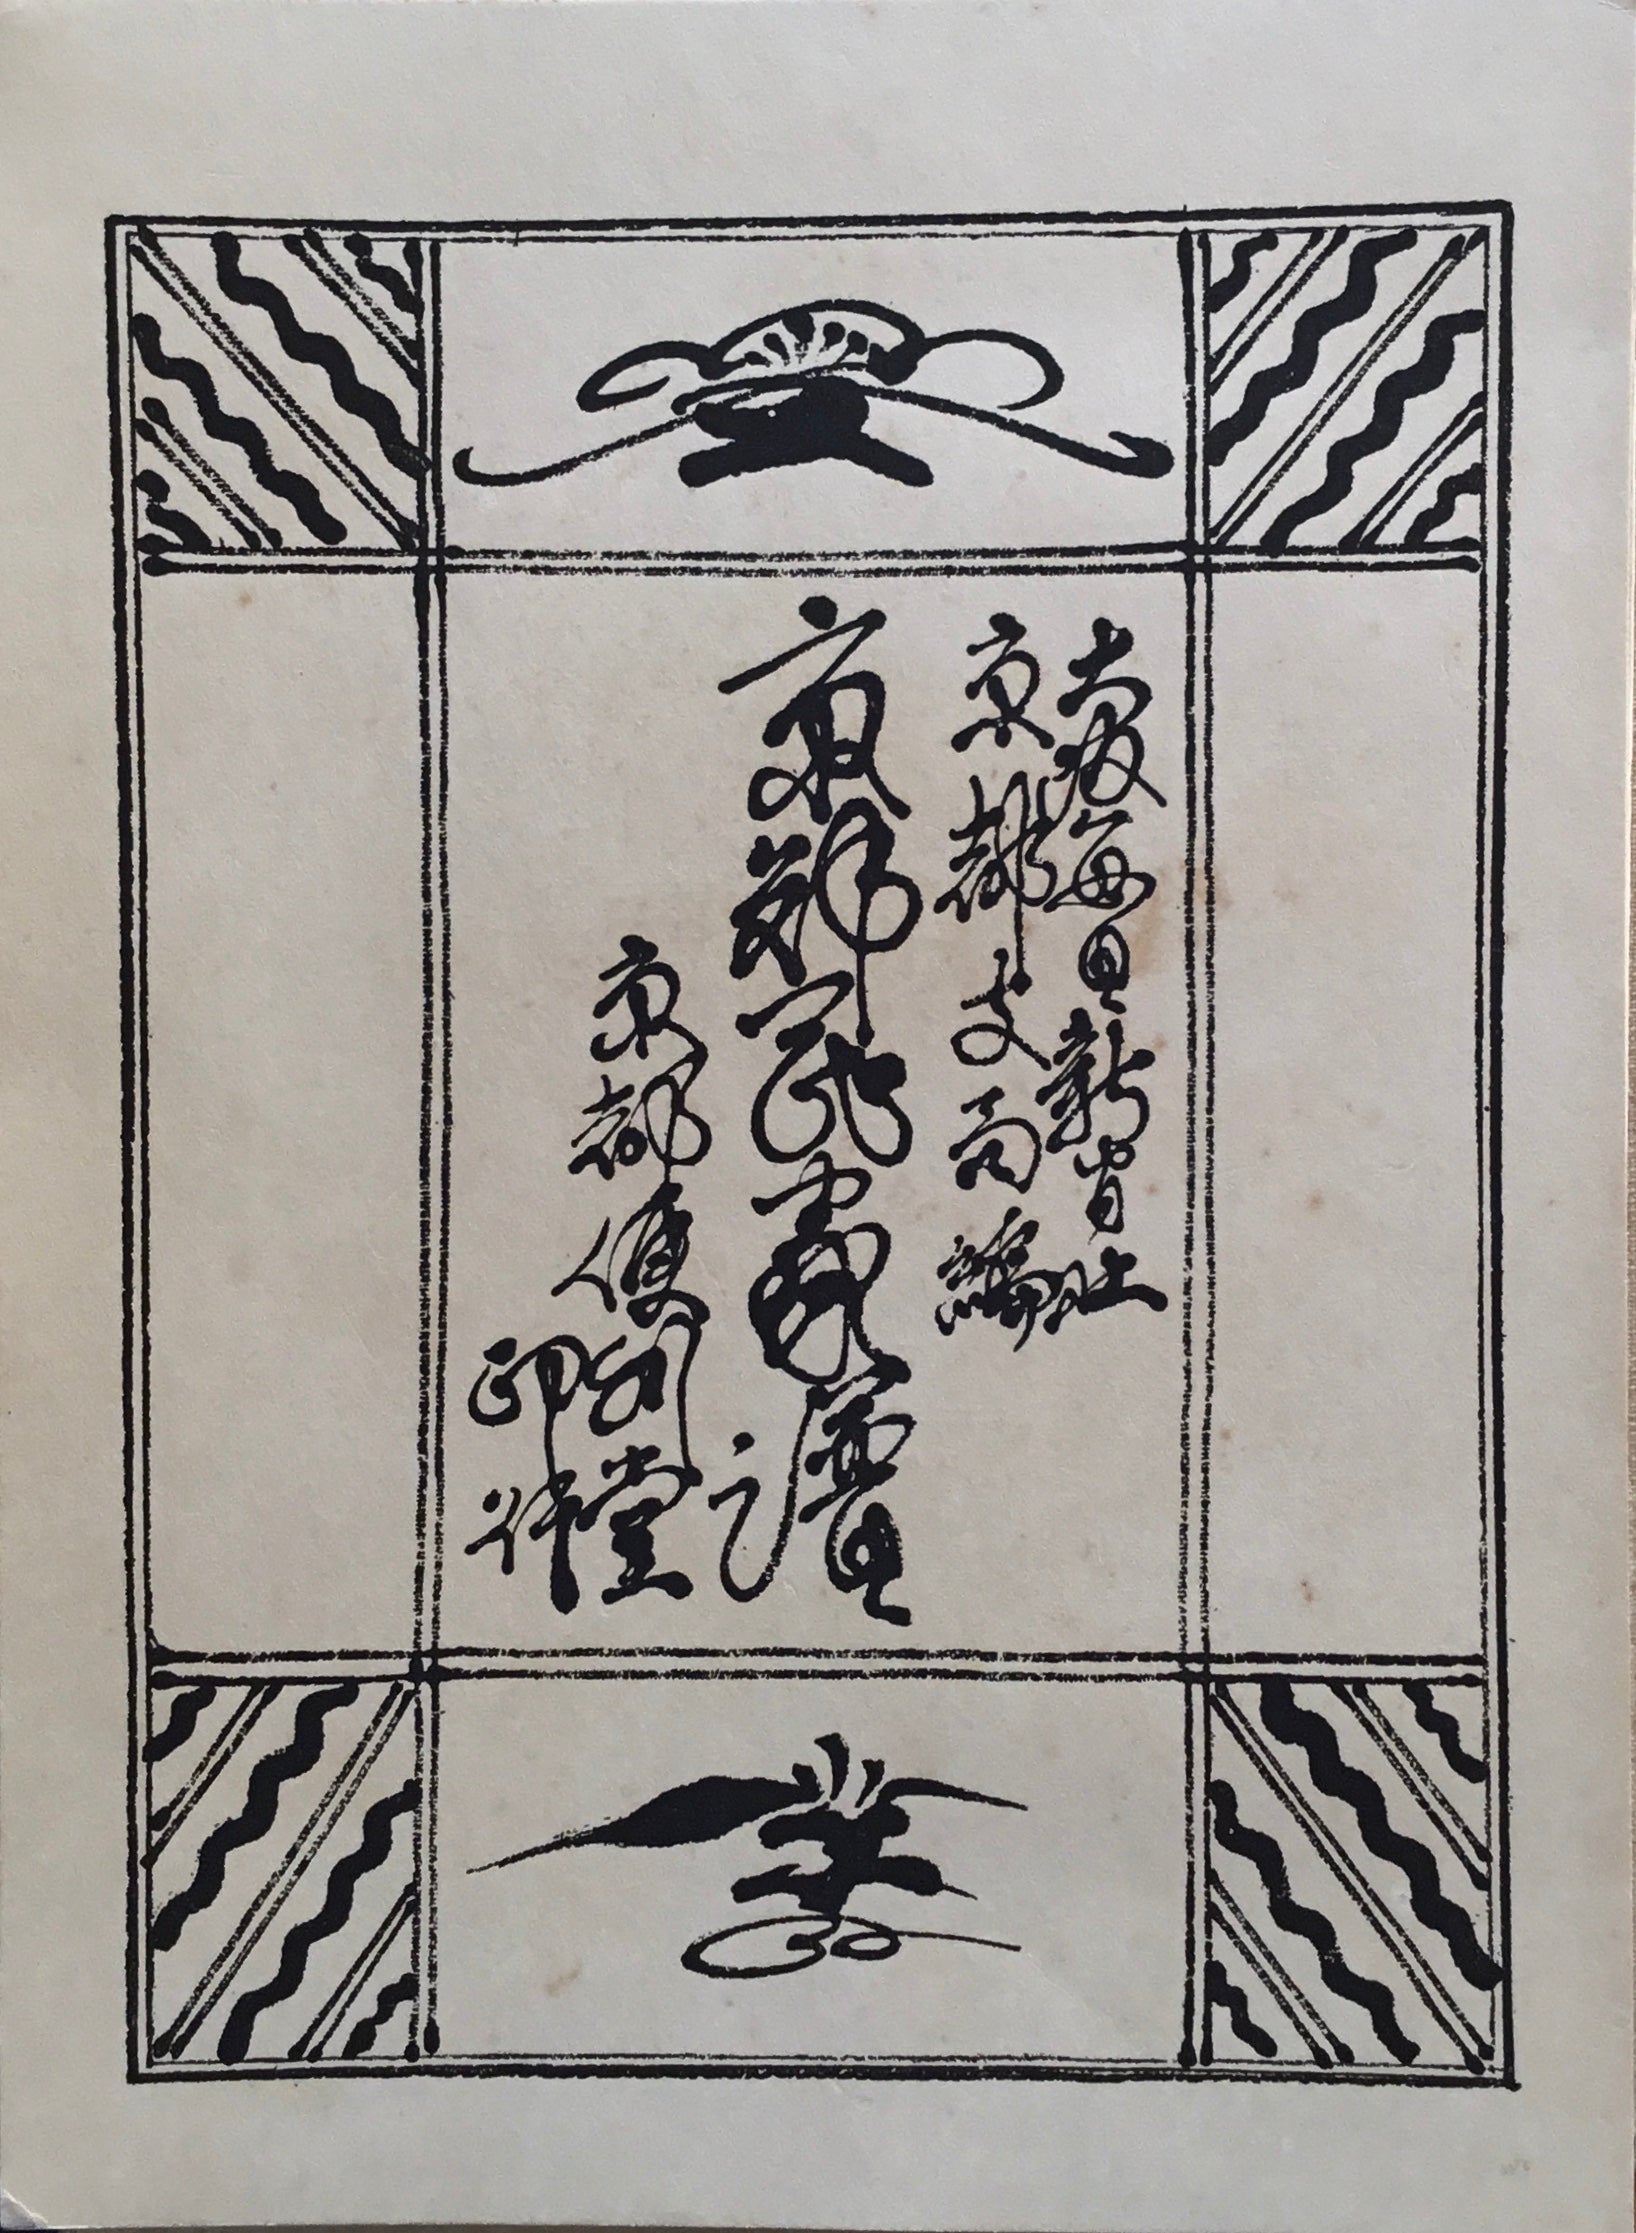 大阪毎日新聞社
京都支局編
京都民家譜
京都便利堂
印行